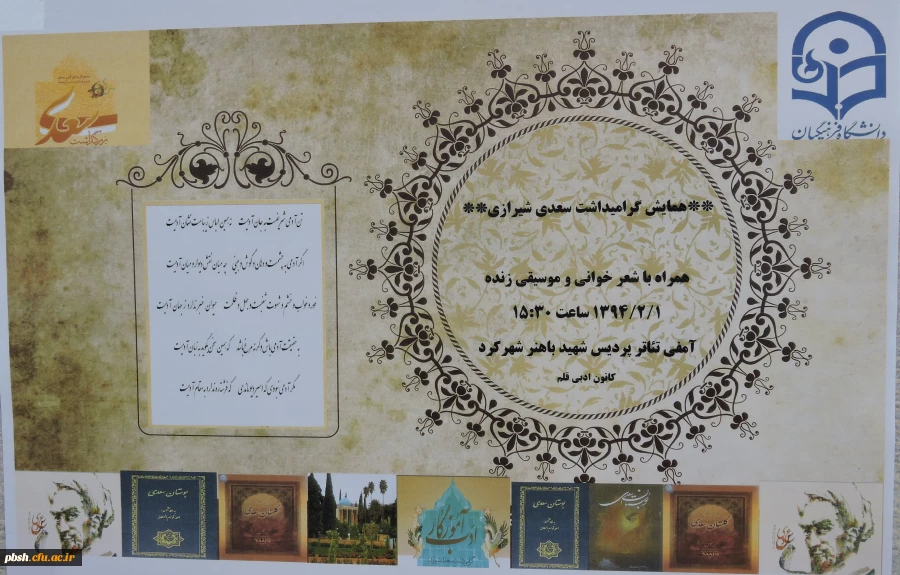 دانشگاه فرهنگیان
**همایش گرامیداشت سعدی شیرازی**
همراه با شعر خوانی و موسیقی زنده
۱۳۹۴/۲/۱ ساعت ۱۵:۳۰
آمفی تئاتر پردیس شهید باهنر شهرکرد
کانون ادبی قلم
تن آدمی شریف است به جان آدمیت نه همین لباس زیباست نشان آدمیت
اگر آدمی به چشمست و دهان و گوش و بینی چه میان نقش دیوار و میان آدمیت
خور و خواب و خشم و شهوت شغبست و جهل و ظلمت حیوان خبر ندارد ز جهان آدمیت
به حقیقت آدمی باش وگرنه مرغ باشد که همین سخن بگوید به زبان آدمیت
مگر آدمی نبودی که اسیر دیو ماندی که فرشته ره ندارد به مقام آدمیت
بوستان سعدی
گلستان سعدی
ادب آموزگار
بوستان سعدی
گلستان سعدی
pbsh.cfu.ac.ir